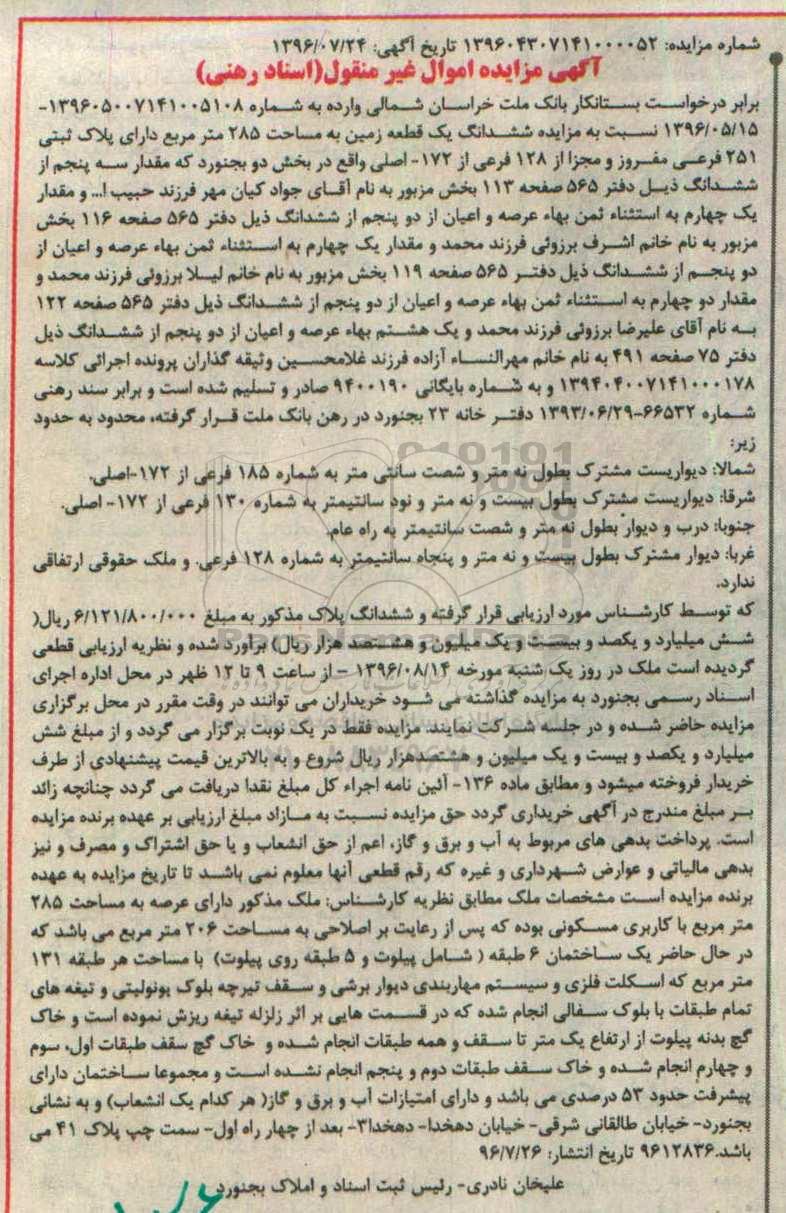 شماره مزایده: ۱۳۹۶۰۴۳۰۷۱۴۱۰۰۰۰۵۲ تاریخ آگهی: ۱۳۹۶/۰۷/۲۴
آگهی مزایده اموال غیر منقول(اسناد رهنی)
برابر درخواست بستانکار بانک ملت خراسان شمالی وارده به شماره ۱۳۹۶۰۵۰۰۷۱۴۱۰۰۵۱۰۸-
۱۳۹۶/۰۵/۱۵ نسبت به مزایده ششدانگ یک قطعه زمین به مساحت ۲۸۵ متر مربع دارای پلاک ثبتی
۲۵۱ فرعی مفروز و مجزا از ۱۲۸ فرعی از ۱۷۲- اصلی واقع در بخش دو بجنورد که مقدار سه پنجم از
ششدانگ ذیل دفتر ۵۶۵ صفحه ۱۱۳ بخش مزبور به نام آقای جواد کیان مهر فرزند حبیب ا... و مقدار
یک چهارم به استثناء ثمن بهاء عرصه و اعیان از دو پنجم از ششدانگ ذیل دفتر ۵۶۵ صفحه ۱۱۶ بخش
مزبور به نام خانم اشرف برزوئی فرزند محمد و مقدار یک چهارم به استثناء ثمن بهاء عرصه و اعیان از
دو پنجم از ششدانگ ذیل دفتر ۵۶۵ صفحه ۱۱۹ بخش مزبور به نام خانم لیلا برزوئی فرزند محمد و
مقدار دو چهارم به استثناء ثمن بهاء عرصه و اعیان از دو پنجم از ششدانگ ذیل دفتر ۵۶۵ صفحه ۱۲۲
به نام آقای علیرضا برزوئی فرزند محمد و یک هشتم بهاء عرصه و اعیان از دو پنجم از ششدانگ ذیل
دفتر ۷۵ صفحه ۴۹۱ به نام خانم مهرالنساء آزاده فرزند غلامحسین وثیقه گذاران پرونده اجرائی کلاسه
۱۳۹۴۰۴۰۰۷۱۴۱۰۰۰۱۷۸ و به شماره بایگانی ۹۴۰۰۱۹۰ صادر و تسلیم شده است و برابر سند رهنی
شماره ۶۶۵۳۲-۱۳۹۳/۰۶/۲۹ دفتر خانه ۲۳ بجنورد در رهن بانک ملت قرار گرفته، محدود به حدود
زیر:
شمالا: دیواریست مشترک بطول نه متر و شصت سانتی متر به شماره ۱۸۵ فرعی از ۱۷۲-اصلی.
شرقا: دیواریست مشترک بطول بیست و نه متر و نود سانتیمتر به شماره ۱۳۰ فرعی از ۱۷۲- اصلی.
جنوبا: درب و دیوار بطول نه متر و شصت سانتیمتر به راه عام.
غربا: دیوار مشترک بطول بیست و نه متر و پنجاه سانتیمتر به شماره ۱۲۸ فرعی. و ملک حقوقی ارتفاقی
ندارد.
که توسط کارشناس مورد ارزیابی قرار گرفته و ششدانگ پلاک مذکور به مبلغ ۶/۱۲۱/۸۰۰/۰۰۰ ریال(
شش میلیارد و یکصد و بیست و یک میلیون و هشتصد هزار ریال) براورد شده و نظریه ارزیابی قطعی
گردیده است ملک در روز یک شنبه مورخه ۱۳۹۶/۰۸/۱۴ – از ساعت ۹ تا ۱۲ ظهر در محل اداره اجرای
اسناد رسمی بجنورد به مزایده گذاشته می شود خریداران می توانند در وقت مقرر در محل برگزاری
مزایده حاضر شده و در جلسه شرکت نمایند. مزایده فقط در یک نوبت برگزار می گردد و از مبلغ شش
میلیارد و یکصد و بیست و یک میلیون و هشتصدهزار ریال شروع و به بالاترین قیمت پیشنهادی از طرف
خریدار فروخته میشود و مطابق ماده ۱۳۶- آئین نامه اجراء کل مبلغ نقدا دریافت می گردد چنانچه زائد
بر مبلغ مندرج در آگهی خریداری گردد حق مزایده نسبت به مازاد مبلغ ارزیابی بر عهده برنده مزایده
است. پرداخت بدهی های مربوط به آب و برق و گاز، اعم از حق انشعاب و یا حق اشتراک و مصرف و نیز
بدهی مالیاتی و عوارض شهرداری و غیره که رقم قطعی آنها معلوم نمی باشد تا تاریخ مزایده به عهده
برنده مزایده است مشخصات ملک مطابق نظریه کارشناس: ملک مذکور دارای عرصه به مساحت ۲۸۵
متر مربع با کاربری مسکونی بوده که پس از رعایت بر اصلاحی به مساحت ۲۰۶ متر مربع می باشد که
در حال حاضر یک ساختمان ۶ طبقه ( شامل پیلوت و ۵ طبقه روی پیلوت) با مساحت هر طبقه ۱۳۱
متر مربع که اسکلت فلزی و سیستم مهاربندی دیوار برشی و سقف تیرچه بلوک یونولیتی و تیغه های
تمام طبقات با بلوک سفالی انجام شده که در قسمت هایی بر اثر زلزله تیغه ریزش نموده است و خاک
گچ بدنه پیلوت از ارتفاع یک متر تا سقف و همه طبقات انجام شده و خاک گچ سقف طبقات اول، سوم
و چهارم انجام شده و خاک سقف طبقات دوم و پنجم انجام نشده است و مجموعا ساختمان دارای
پیشرفت حدود ۵۳ درصدی می باشد و دارای امتیازات آب و برق و گاز( هر کدام یک انشعاب) و به نشانی
بجنورد- خیابان طالقانی شرقی- خیابان دهخدا- دهخدا۳- بعد از چهار راه اول- سمت چپ پلاک ۴۱ می
باشد.۹۶۱۲۸۳۶ تاریخ انتشار: ۹۶/۷/۲۶
علیخان نادری- رئیس ثبت اسناد و املاک بجنورد